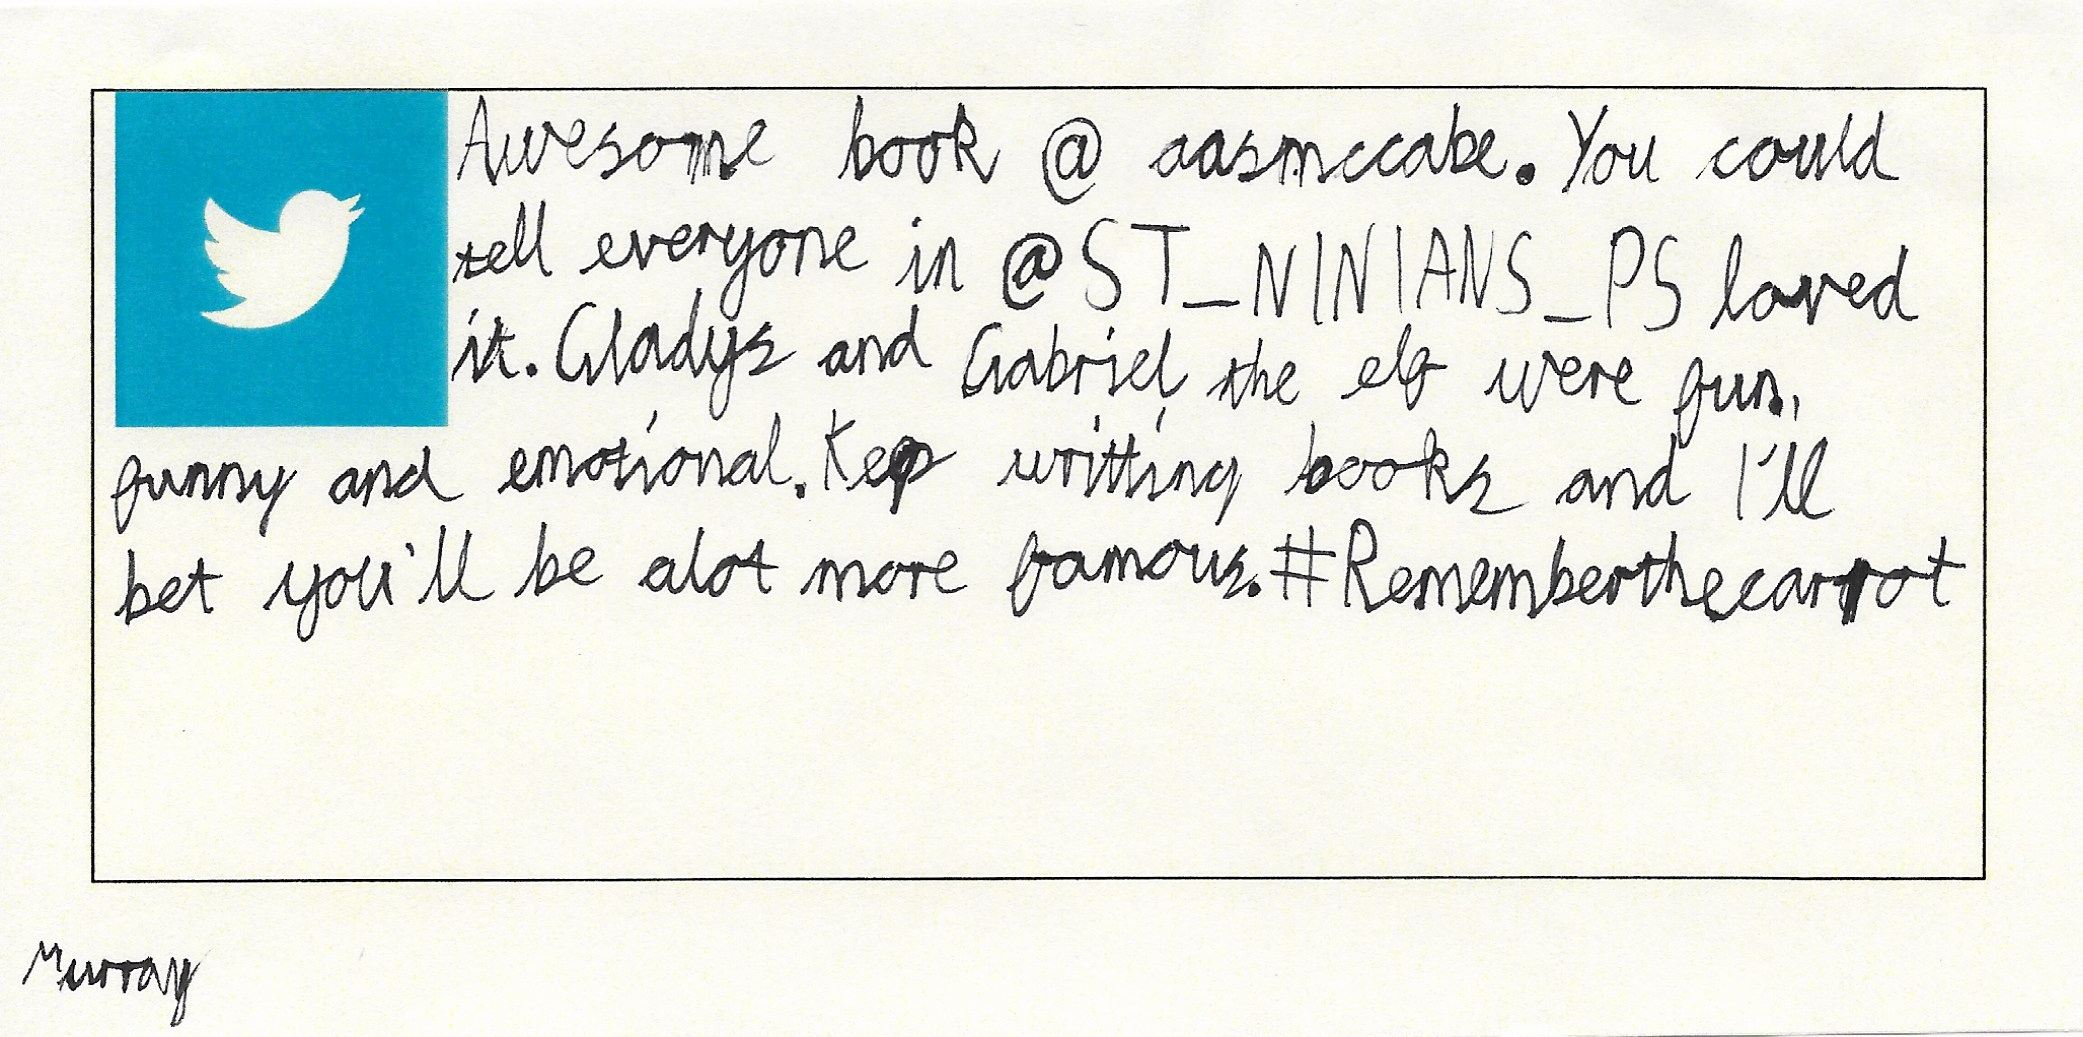 Awesome book @ aasmccabe. You could
tell everyone in @ST_NINIANS_PS loved
it. Gladys and Gabriel the elf were fun,
funny and emotional. Kep writting books and I'll
bet you'll be alot more famous. #Rememberthecarrot
Murray